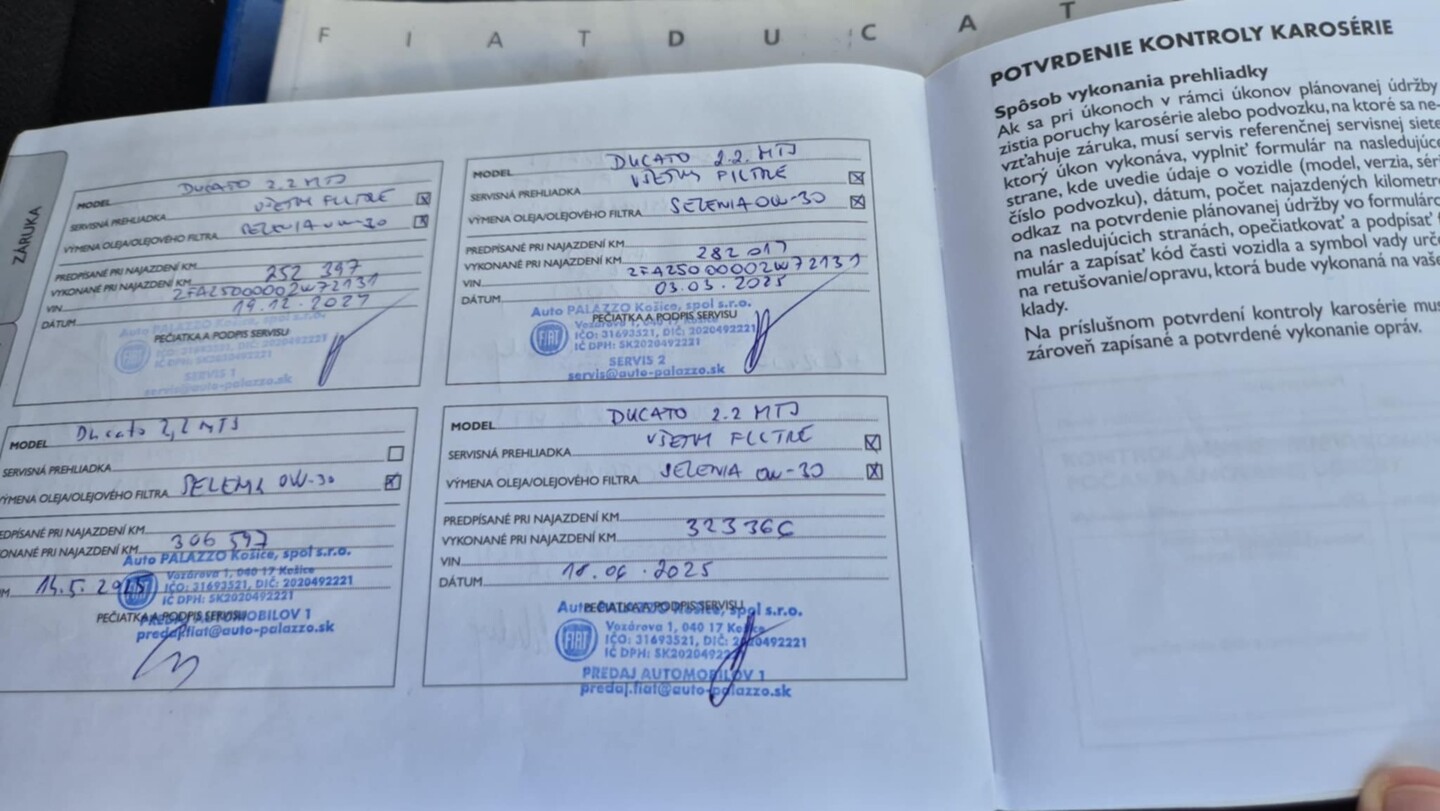 F I A T D U C A T
ZÁRUKA
MODEL DUCATO 2.2 MTJ
SERVISNÁ PREHLIADKA VŠETKY FILTRE
VÝMENA OLEJA/OLEJOVÉHO FILTRA SELENIA 0W-30
PREDPÍSANÉ PRI NAJAZDENÍ KM
VYKONANÉ PRI NAJAZDENÍ KM 252 397
VIN ZFA25000002W72131
DÁTUM 19.12.2024
Auto PALAZZO Košice, spol s.r.o.
PEČIATKA A PODPIS SERVISU
IČO: 31693521, DIČ: 2020492221
IČ DPH: SK2020492221
SERVIS 1
servis@auto-palazzo.sk
MODEL DUCATO 2.2 MTJ
SERVISNÁ PREHLIADKA VŠETKY FILTRE
VÝMENA OLEJA/OLEJOVÉHO FILTRA SELENIA 0W-30
PREDPÍSANÉ PRI NAJAZDENÍ KM
VYKONANÉ PRI NAJAZDENÍ KM 282 017
VIN ZFA25000002W72131
DÁTUM 03.03.2025
Auto PALAZZO Košice, spol s.r.o.
PEČIATKA A PODPIS SERVISU
Vozárova 1, 040 17
FIAT
IČO: 31693521, DIČ: 2020492221
IČ DPH: SK2020492221
SERVIS 2
servis@auto-palazzo.sk
MODEL Ducato 2,2 MTJ
SERVISNÁ PREHLIADKA
VÝMENA OLEJA/OLEJOVÉHO FILTRA SELENIA 0W-30
EDPÍSANÉ PRI NAJAZDENÍ KM
ONANÉ PRI NAJAZDENÍ KM 306 597
Auto PALAZZO Košice, spol s.r.o.
Vozárova 1, 040 17 Košice
M 14.5.2025
IČO: 31693521, DIČ: 2020492221
IČ DPH: SK2020492221
PEČIATKA A PODPIS SERVISU
PREDAJ AUTOMOBILOV 1
predaj.fiat@auto-palazzo.sk
MODEL DUCATO 2.2 MTJ
SERVISNÁ PREHLIADKA VŠETKY FILTRE
VÝMENA OLEJA/OLEJOVÉHO FILTRA SELENIA 0W-30
PREDPÍSANÉ PRI NAJAZDENÍ KM
VYKONANÉ PRI NAJAZDENÍ KM 323366
VIN
DÁTUM 18.06.2025
Auto PALAZZO Košice, spol s.r.o.
PEČIATKA A PODPIS SERVISU
Vozárova 1, 040 17 Košice
FIAT
IČO: 31693521, DIČ: 2020492221
IČ DPH: SK2020492221
PREDAJ AUTOMOBILOV 1
predaj.fiat@auto-palazzo.sk
POTVRDENIE KONTROLY KAROSÉRIE
Spôsob vykonania prehliadky
Ak sa pri úkonoch v rámci úkonov plánovanej údržby
zistia poruchy karosérie alebo podvozku, na ktoré sa ne-
vzťahuje záruka, musí servis referenčnej servisnej siete
ktorý úkon vykonáva, vyplniť formulár na nasledujúce
strane, kde uvedie údaje o vozidle (model, verzia, séri
číslo podvozku), dátum, počet najazdených kilometro
odkaz na potvrdenie plánovanej údržby vo formulároc
na nasledujúcich stranách, opečiatkovať a podpísať f
mulár a zapísať kód časti vozidla a symbol vady urče
na retušovanie/opravu, ktorá bude vykonaná na vaše
klady.
Na príslušnom potvrdení kontroly karosérie mus
zároveň zapísané a potvrdené vykonanie opráv.